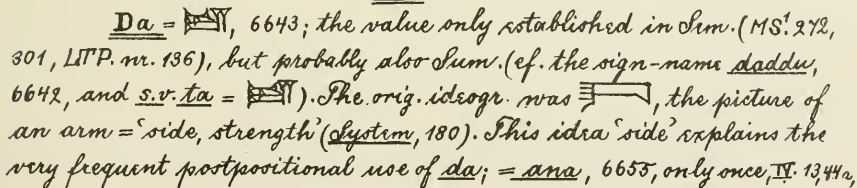 Da = 𒁕, 6643; the value only established in Sem. (MS¹. 272,
301, LTP. nr. 136), but probably also Sum. (cf. the sign-name daddu,
6642, and s.v. ta = 𒁕). The orig. ideogr. was , the picture of
an arm = 'side, strength' (System, 180). This idea 'side' explains the
very frequent postpositional use of da; = ana, 6655, only once, IV. 13, 44a,